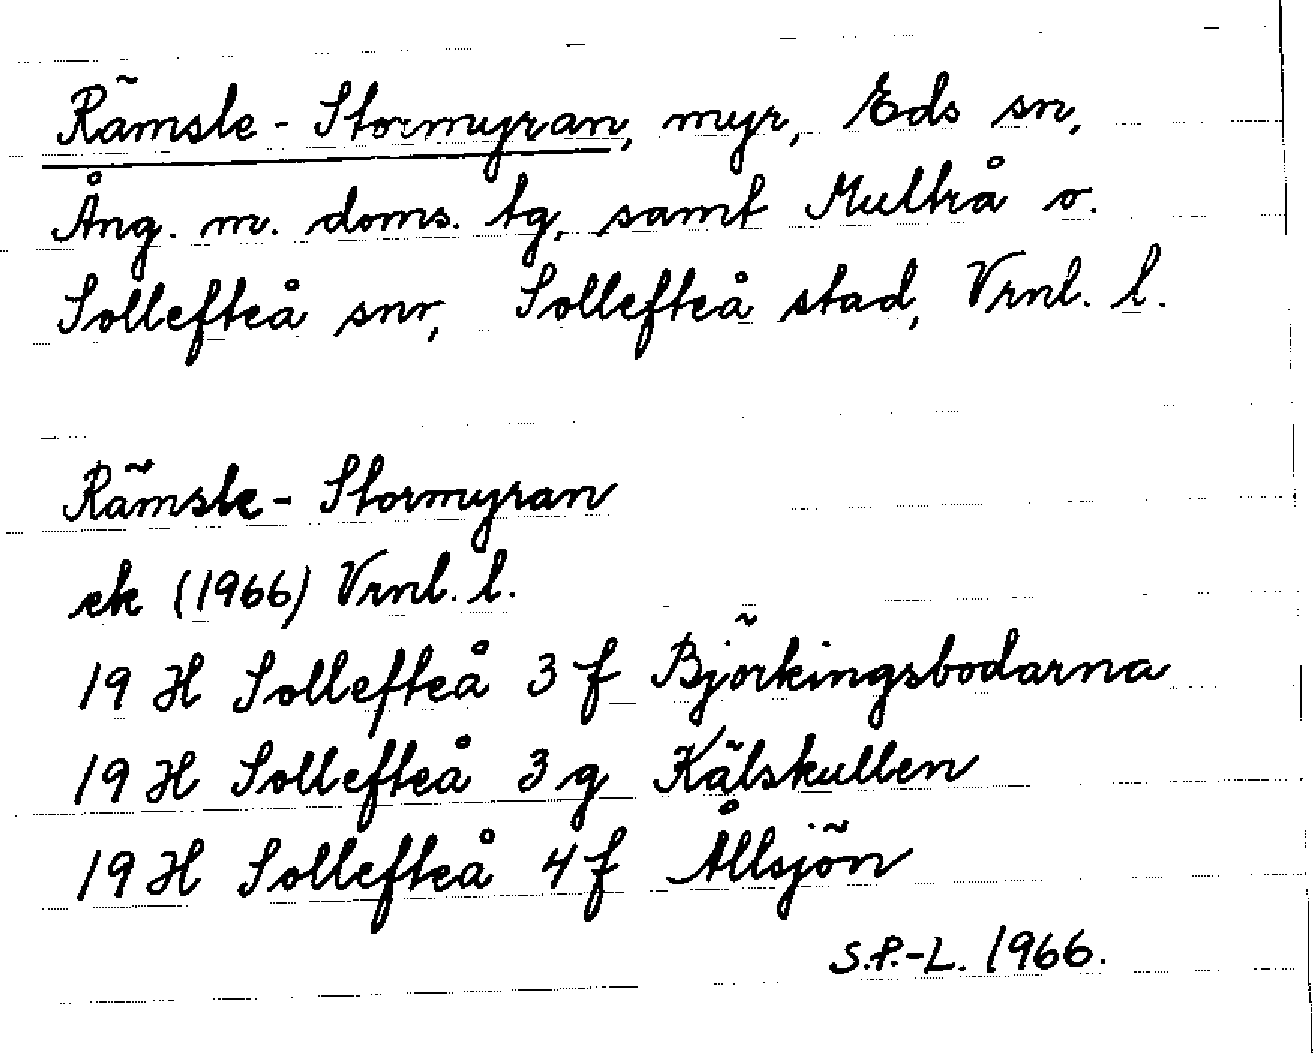 Rämsle-Stormyran, myr, Eds sn,
Ång. m. doms. tg. samt Multrå o.
Sollefteå snr, Sollefteå stad, Vrnl. l.
Rämsle-Stormyran
ek (1966) Vrnl. l.
19 H Sollefteå 3 f Björkingsbodarna
19 H Sollefteå 3 g Kälskullen
19 H Sollefteå 4 f Ållsjön
S.P.-L. 1966.